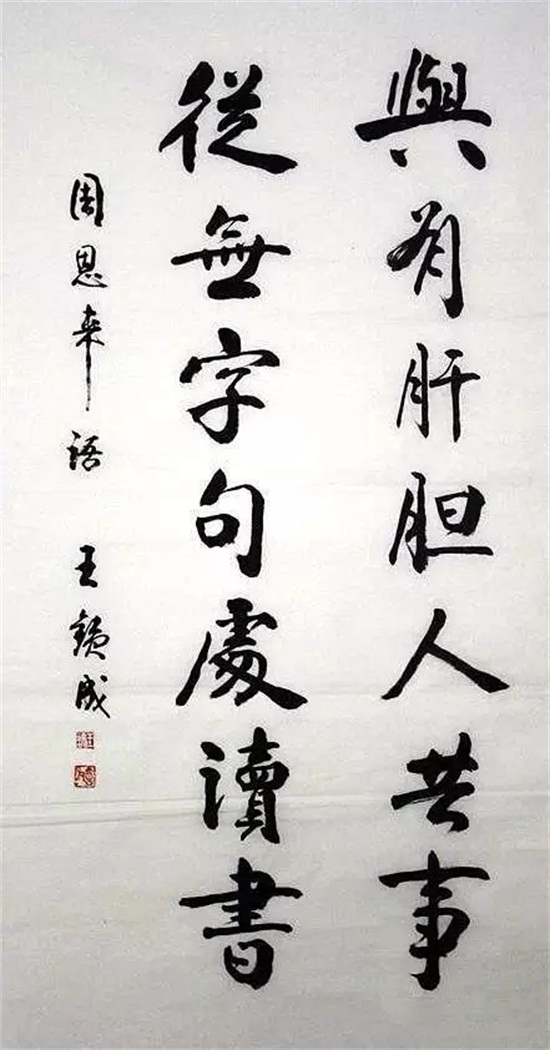 與有肝胆人共事
從無字句處讀書
周恩来语 王鐀成